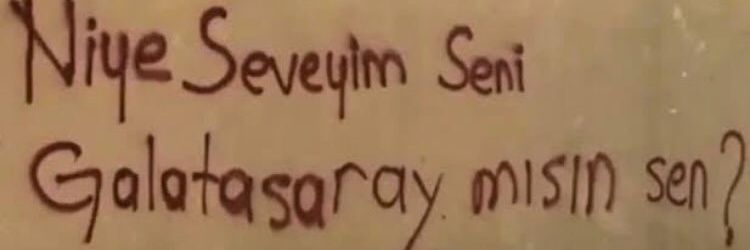 Niye Seveyim Seni
Galatasaray mısın sen?